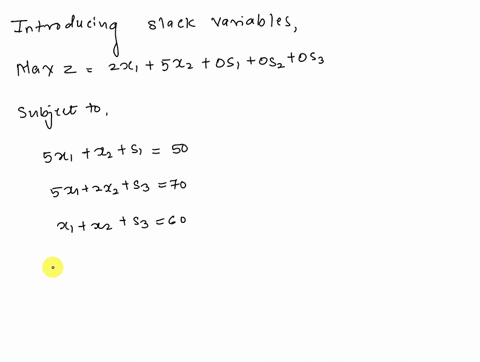 Introducing slack variables,
Max Z = 2x1 + 5x2 + 0S1 + 0S2 + 0S3
Subject to,
5x1 + x2 + S1 = 50
5x1 + 2x2 + S3 = 70
x1 + x2 + S3 = 60